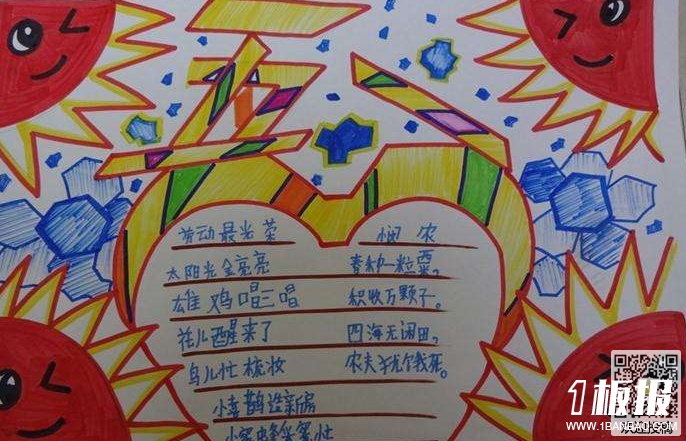 五一
劳动最光荣
太阳光金亮亮
雄鸡唱三唱
花儿醒来了
鸟儿忙梳妆
小喜鹊造新房
悯农
春种一粒粟,
积收万颗子。
四海无闲田,
农夫犹饿死。
1板报
WWW.1BANBAO.COM